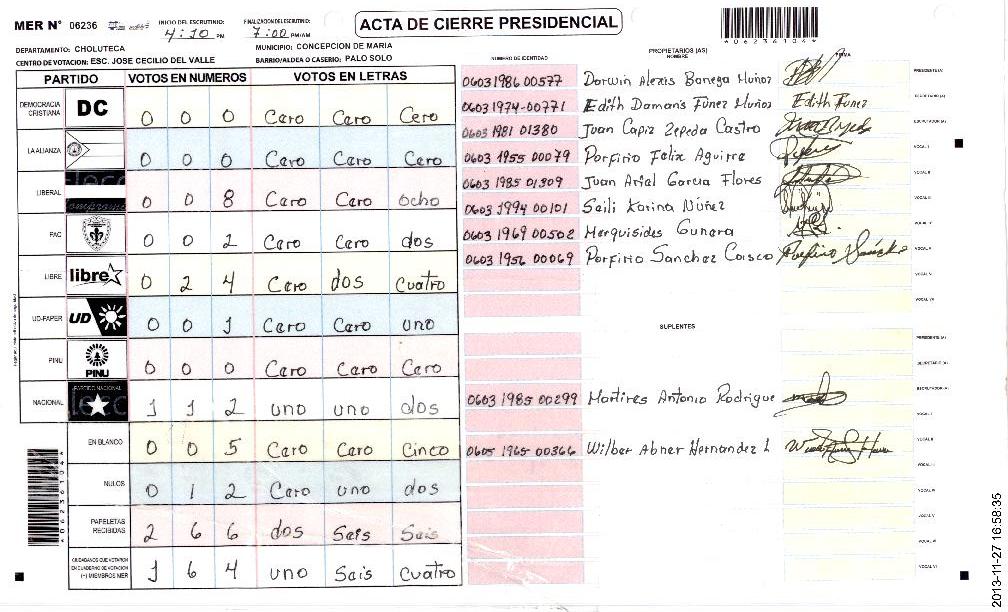 MER N° 06236
INICIO DEL ESCRUTINIO: 4:10 PM
FINALIZACION DEL ESCRUTINIO: 7:00 PM/AM
ACTA DE CIERRE PRESIDENCIAL
*06236104*
DEPARTAMENTO: CHOLUTECA
MUNICIPIO: CONCEPCION DE MARIA
CENTRO DE VOTACION: ESC. JOSE CECILIO DEL VALLE
BARRIO/ALDEA O CASERIO: PALO SOLO
PARTIDO VOTOS EN NUMEROS VOTOS EN LETRAS
DEMOCRACIA CRISTIANA DC 0 0 0 Caro Caro Cero
LA ALIANZA 0 0 0 Caro Caro Cero
LIBERAL 0 0 8 Caro Caro ocho
PAC 0 0 2 Caro Caro dos
LIBRE libre 0 2 4 Caro dos cuatro
UD-FAPER UD 0 0 1 Caro Caro uno
PINU PINU 0 0 0 Caro Caro Caro
NACIONAL PARTIDO NACIONAL 1 1 2 uno uno dos
EN BLANCO 0 0 5 Caro Caro Cinco
NULOS 0 1 2 Caro uno dos
PAPELETAS RECIBIDAS 2 6 6 dos Sais Sais
CIUDADANOS QUE VOTARON EN CUADERNO DE VOTACION (+) MIEMBROS MER 1 6 4 uno Sais cuatro
NUMERO DE IDENTIDAD
PROPIETARIOS (AS)
NOMBRE
FIRMA
0603 1986 00577 Darwin Alexis Banega Muñoz PRESIDENTE (A)
0603 1974-00771 Edith Damaris Funez Muñoz Edith Funez SECRETARIO (A)
0603 1981 01380 Juan Capiz Zepeda Castro ESCRUTADOR (A)
0603 1955 00079 Porfirio Felix Aguirre VOCAL I
0603 1985 01309 Juan Arial Garcia Flores VOCAL II
0603 1994 00101 Saili Karina Núñez VOCAL III
0603 1969 00502 Merquisides Gunera VOCAL IV
0603 1956 00069 Porfirio Sanchez Corsco Porfirio Sánchez VOCAL V
VOCAL VI
VOCAL VII
SUPLENTES
PRESIDENTE (A)
SECRETARIO (A)
0603 1985 00299 Martires Antonio Rodrigue ESCRUTADOR (A)
VOCAL I
0605 1965 00366 Wilber Abner Hernandez L VOCAL II
VOCAL III
VOCAL IV
VOCAL V
VOCAL VI
VOCAL VII
2013-11-27 16:58:35